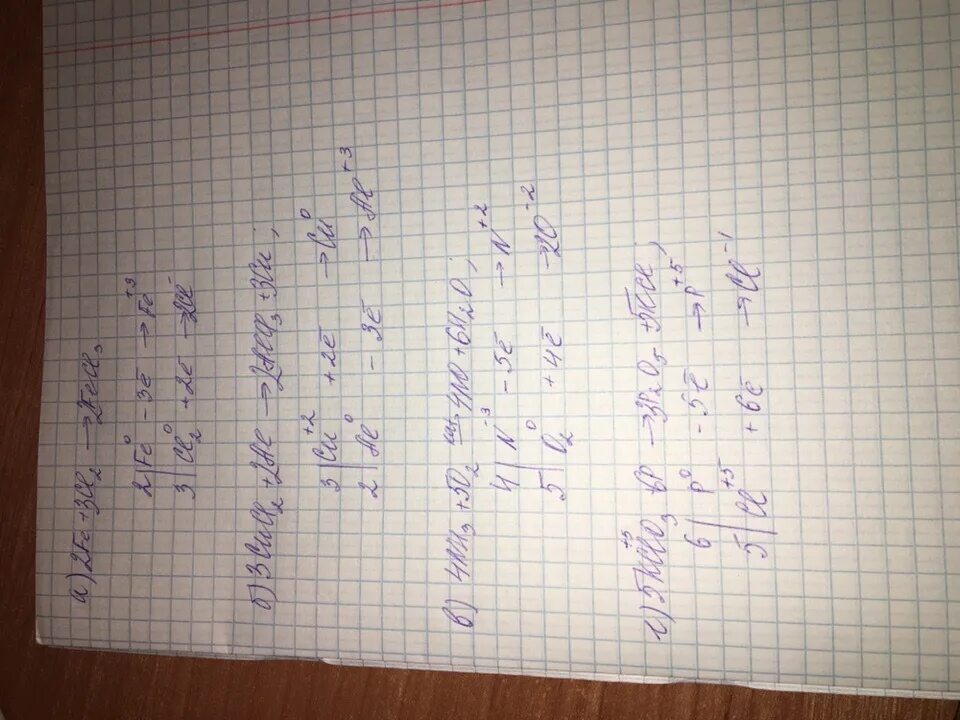 а) 2Fe + 3Cl₂ → 2FeCl₃
2 | Fe⁰ - 3ē → Fe⁺³
3 | Cl₂⁰ + 2ē → 2Cl⁻
б) 3CuCl₂ + 2Al → 2AlCl₃ + 3Cu ;
3 | Cu⁺² + 2ē → Cu⁰
2 | Al⁰ - 3ē → Al⁺³
в) 4NH₃ + 5O₂ → 4NO + 6H₂O ;
4 | N⁻³ - 5ē → N⁺²
5 | O₂⁰ + 4ē → 2O⁻²
г) 5KCl⁺⁵O₃ 6P → 3P₂O₅ + 5KCl ;
6 | P⁰ - 5ē → P⁺⁵
5 | Cl⁺⁵ + 6ē → Cl⁻¹